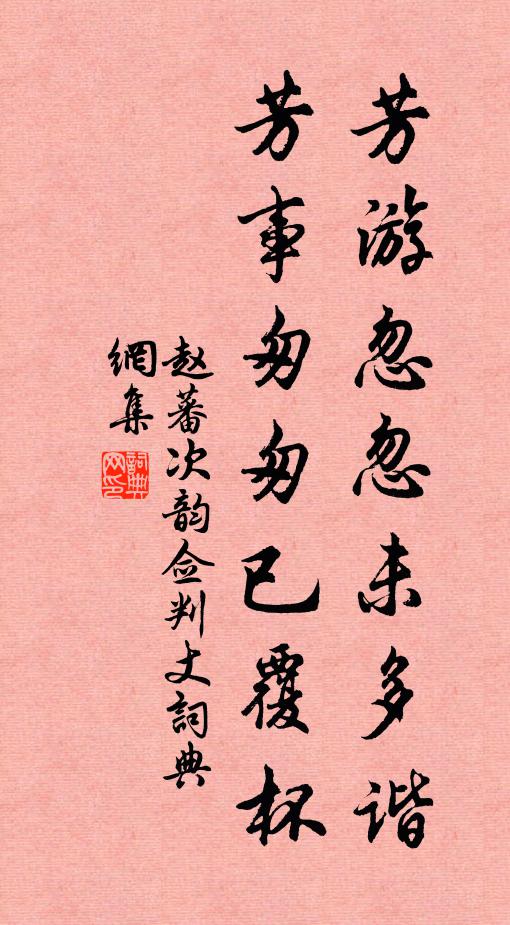 芳游忽忽未多谐
芳事匆匆已覆杯
赵蕃次韵佥判丈詞典
網集
詞典
网印